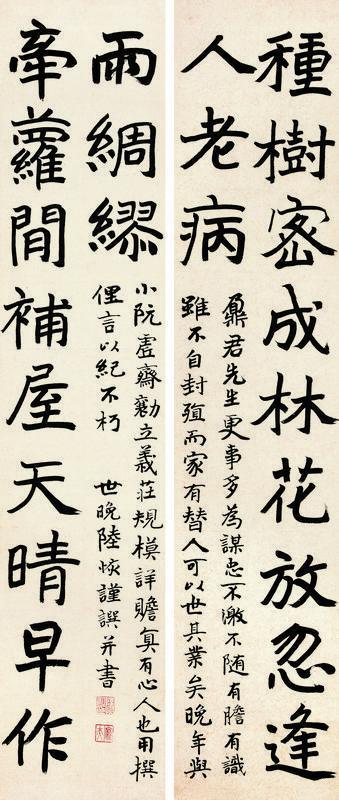 種樹密成林花放忽逢
人老病
鼐君先生更事多為謀忠不激不随有膽有識
雖不自封殖而家有替人可以世其業矣晚年與
牽蘿閒補屋天晴早作
雨綢繆
小阮虛齋勸立義莊規模詳贍真有心人也用撰
俚言以紀不朽 世晚陸恢謹譔并書